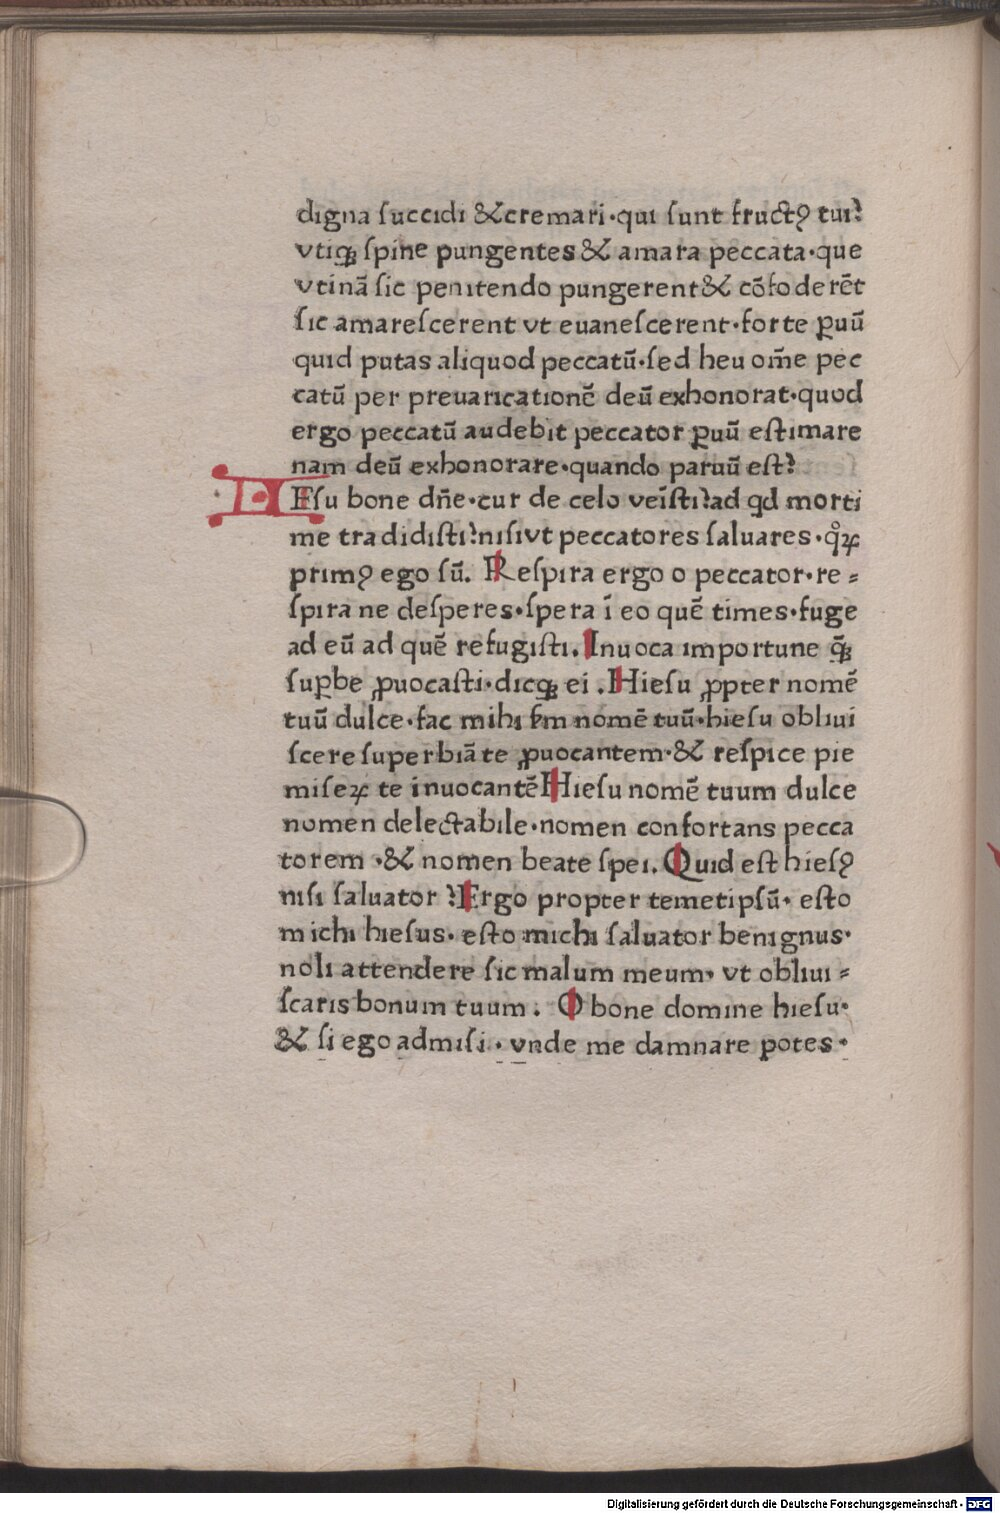 digna ſuccidi &cremari·qui ſunt fructꝰ tui?
vtiqꝫ ſpine pungentes & amara peccata·que
vtinã ſic penitendo pungerent& cõfoderẽt
ſic amareſcerent vt euaneſcerent·forte ꝑuũ
quid putas aliquod peccatũ·ſed heu om̃e pec
catũ per preuaricationẽ deũ exhonorat·quod
ergo peccatũ audebit peccator ꝑuũ eſtimare
nam deũ exhonorare·quando paruũ eſt?
IEſu bone dñe·cur de celo veĩſti?ad qd morti
me tradidiſti?niſivt peccatores ſaluares·qͦꝝ
primꝰ ego ſũ. Reſpira ergo o peccator·re⸗
ſpira ne deſperes·ſpera ĩ eo quẽ times·fuge
ad eũ ad quẽ refugiſti. Inuoca importune q̃ꝫ
ſuꝑbe ꝓuocaſti·dicqꝫ ei .Hieſu ꝓpter nomẽ
tuũ dulce·fac mihi ſm nomẽ tuũ·hieſu obliui
ſcere ſuperbiã te ꝓuocantem·& reſpice pie
miſeꝝ te inuocantẽ Hieſu nomẽ tuum dulce
nomen delectabile·nomen confortans pecca
torem ·& nomen beate ſpei. Quid eſt hieſꝰ
niſi ſaluator ?Ergo propter temetipſũ· eſto
michi hieſus· eſto michi ſaluator benignus·
noli attendere ſic malum meum· vt obliui⸗
ſcaris bonum tuum. O bone domine hieſu·
& ſi ego admiſi · vnde me damnare potes·
Digitalisierung gefördert durch die Deutsche Forschungsgemeinschaft - DFG